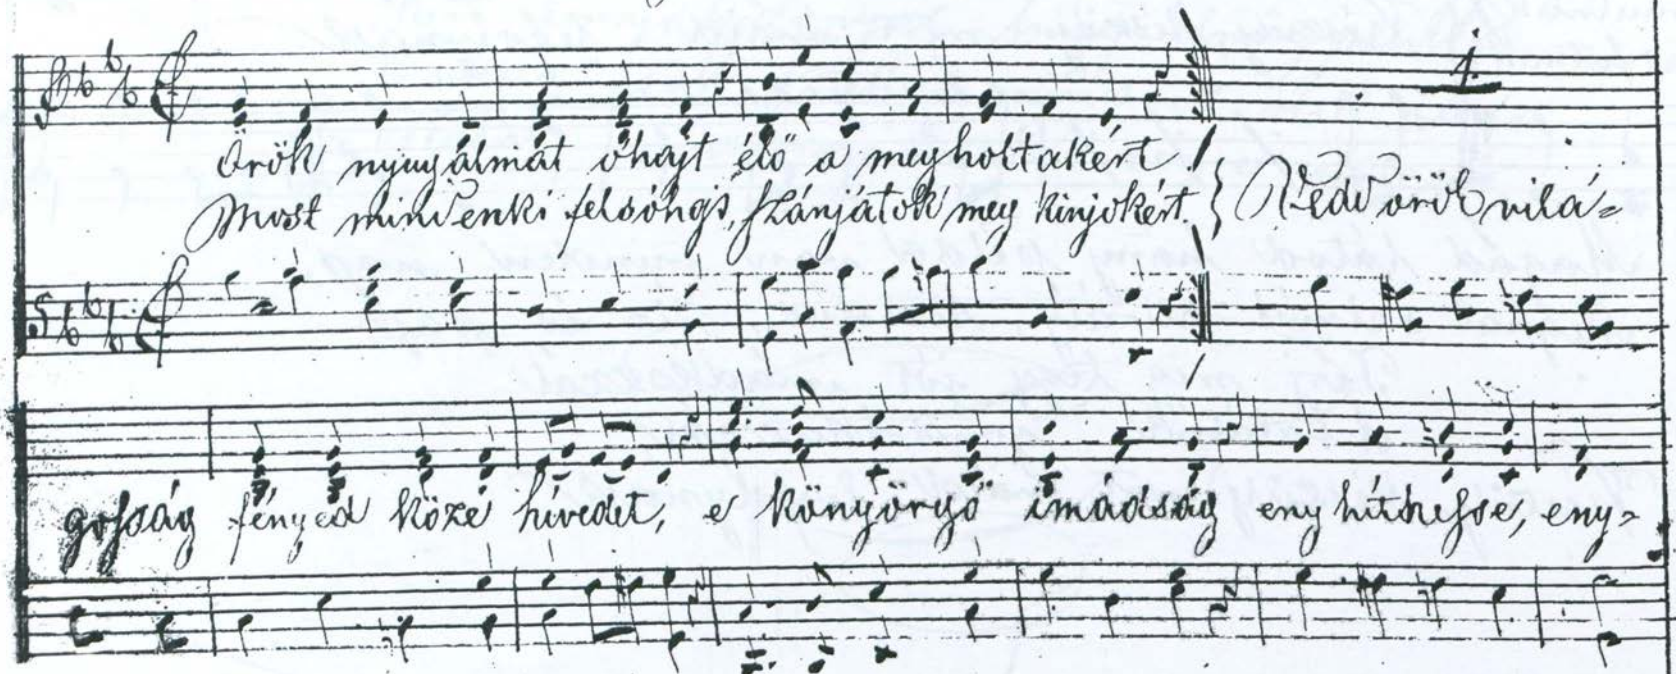 1.
örök nyugalmat óhajt élő a megholtakért!
Most mindenki felsóngj, szánjátok meg kinjokért. } Vedd örök vilá=
gosság fényed közé hivedet, e könyörgő imádság enyhíthesse, eny=